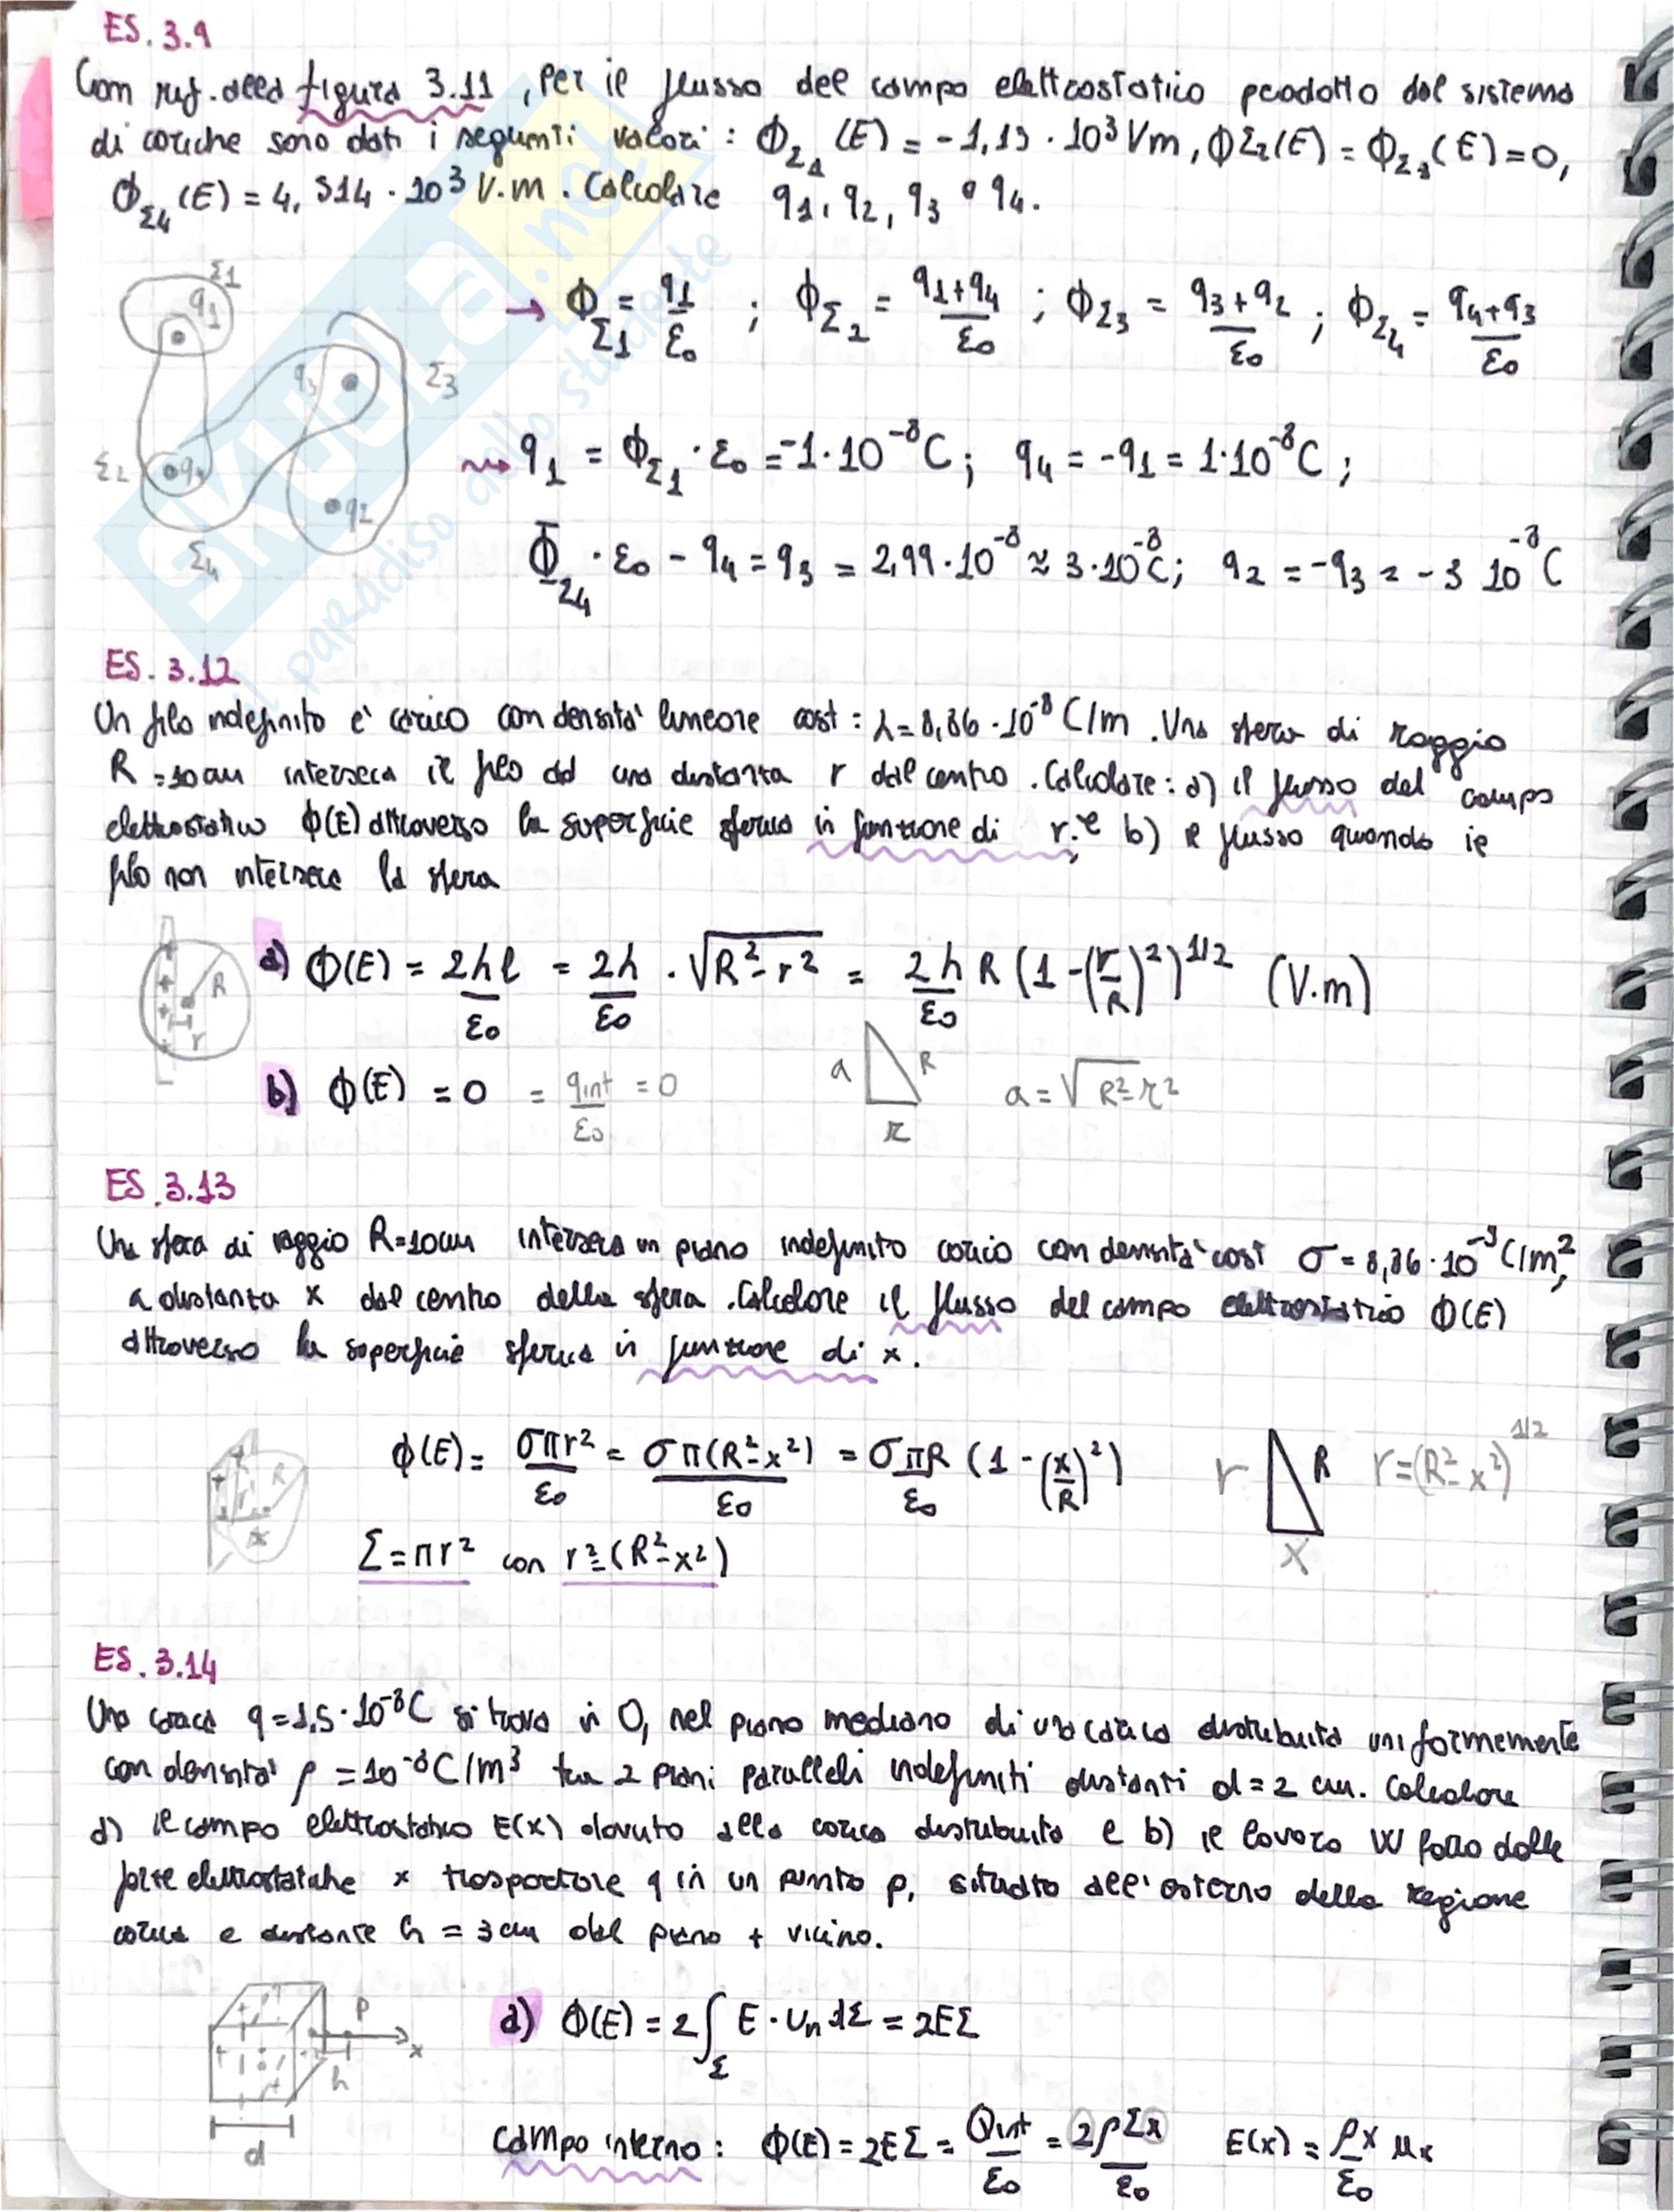 ES. 3.9
Con rif. alla figura 3.11, per il flusso del campo elettrostatico prodotto dal sistema
di cariche sono dati i seguenti valori: Φ_Σ1 (E) = -1,13 · 10³ Vm, ΦΣ2(E) = Φ_Σ3(E) = 0,
Φ_Σ4 (E) = 4,514 · 10³ V.m. Calcolare q1, q2, q3 e q4.
Σ1
q1
q3
Σ3
Σ2
q4
q2
Σ4
→ Φ_Σ1 = q1/ε0 ; Φ_Σ2 = (q1+q4)/ε0 ; Φ_Σ3 = (q3+q2)/ε0 ; Φ_Σ4 = (q4+q3)/ε0
⇝ q1 = Φ_Σ1 · ε0 = -1·10⁻⁸C; q4 = -q1 = 1·10⁻⁸C;
Φ_Σ4 · ε0 - q4 = q3 = 2,99·10⁻⁸ ≈ 3·10⁻⁸C; q2 = -q3 = -3 10⁻⁸C
ES. 3.12
Un filo indefinito è carico con densità lineare cost: λ=8,86·10⁻⁸ C/m. Una sfera di raggio
R=10cm interseca il filo ad una distanza r dal centro. Calcolare: a) il flusso del campo
elettrostatico Φ(E) attraverso la superficie sferica in funzione di r; e b) il flusso quando il
filo non interseca la sfera
R
r
a) Φ(E) = 2λl/ε0 = 2λ/ε0 · √(R²-r²) = 2λ/ε0 R (1-(r/R)²)^1/2 (V.m)
b) Φ(E) = 0 = qint/ε0 = 0
a R r
a = √(R²-r²)
ES. 3.13
Una sfera di raggio R=10cm interseca un piano indefinito carico con densità cost σ = 8,86·10⁻⁹ C/m²,
a distanza x dal centro della sfera. Calcolare il flusso del campo elettrostatico Φ(E)
attraverso la superficie sferica in funzione di x.
R
r
x
Φ(E) = σπr²/ε0 = σπ(R²-x²)/ε0 = σπR/ε0 (1-(x/R)²)
r R x
r=(R²-x²)^1/2
Σ=πr² con r²=(R²-x²)
ES. 3.14
Una carica q=1,5·10⁻⁸C si trova in O, nel piano mediano di una carica distribuita uniformemente
con densità ρ=10⁻⁸C/m³ tra 2 piani paralleli indefiniti distanti d=2 cm. Calcolare
a) il campo elettrostatico E(x) dovuto alla carica distribuita e b) il lavoro W fatto dalle
forze elettrostatiche x trasportare q in un punto p, situato all'esterno della regione
carica e distante h = 3cm dal piano + vicino.
P
x
h
d
a) Φ(E) = 2∫_Σ E · un dΣ = 2EΣ
campo interno: Φ(E) = 2EΣ = Qint/ε0 = 2ρΣx/ε0 E(x) = ρx/ε0 ux
SKUOLA.net
il paradiso dello studente